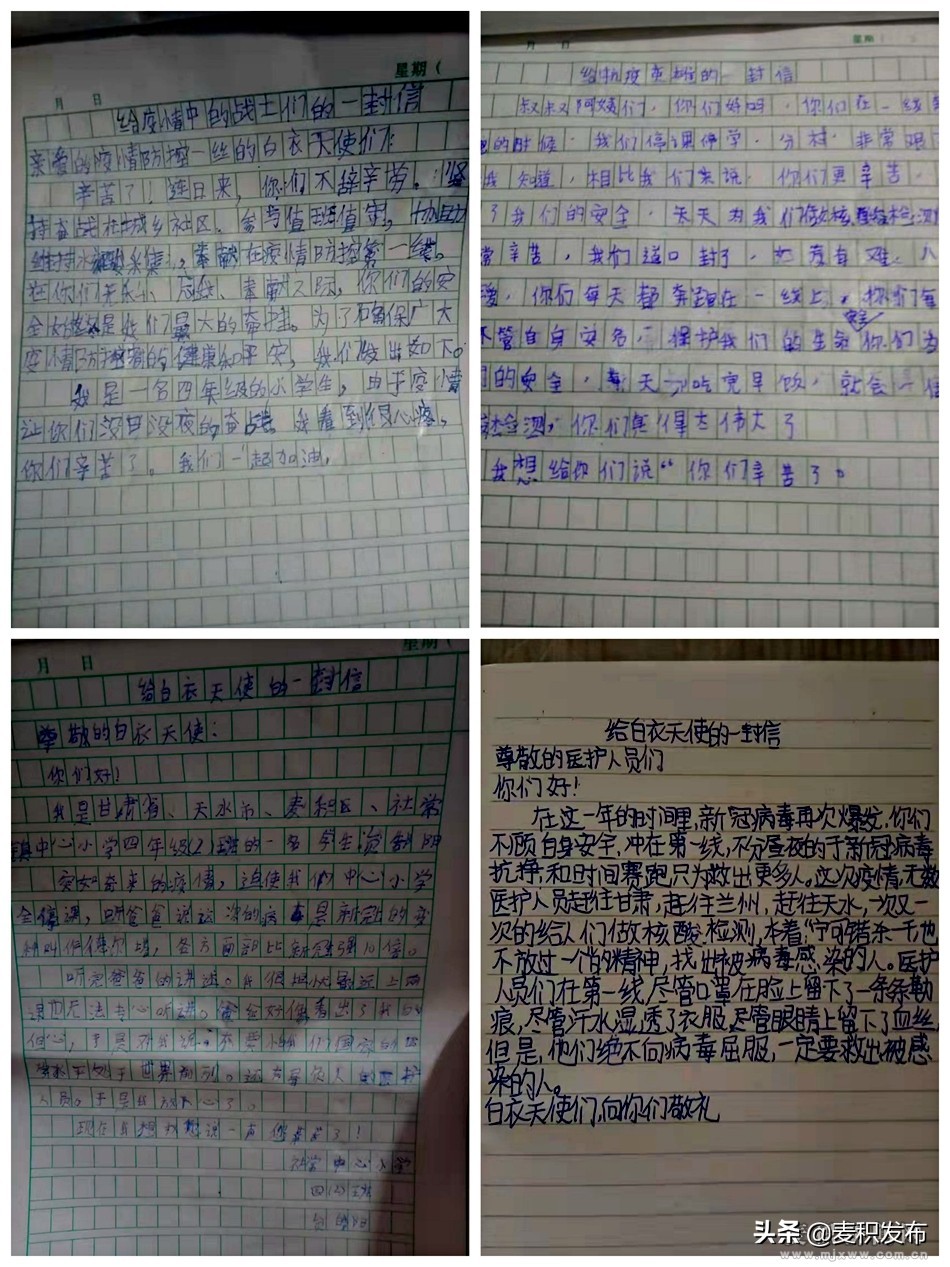 星期(
月 日
给疫情中的战士们的一封信
亲爱的疫情防控一丝的白衣天使们:
辛苦了!连日来,你们不辞辛劳。坚
持奋战在城乡社区、参与值班值守,
采集,奉献在疫情防控第一线。
在你们
全 是她们最大的牵挂。为了确保广大
疫情防控 的健康和平安,我们发出如下。
我是一名四年级的小学生,由于疫情
让你们没日没夜的奋战,我看到很心疼。
你们辛苦了。我们一起加油,
月 日 星期
给抗疫英雄的一封信
叔叔阿姨们,你们好吗,你们在一线
的时候,我们停课停学,分村,非常
我知道,相比我们来说,你们更辛苦,
了我们的安全,天天为我们做核
常辛苦,我们道口封了,一方有难,八
爱,你们每天都奔跑在一线上,你们每
安全
不管自身安危,保护我们的生命你们为
们的安全,每天一吃完早饭,就会一
检测,你们真得太伟大了
我想给你们说“你们辛苦了。
月 日 星期(
给白衣天使的一封信
尊敬的白衣天使:
你们好!
我是甘肃省、天水市、麦积区、社棠
镇中心小学四年级(2)班的一名学生
突如奇来的疫情,迫使我们中心小学
全停课,听爸爸说这次的病毒是新冠的变
各方面都比新冠强10倍。
听完爸爸的讲述。我很担忧最近上网
课也无法专心听讲。爸爸好像看出了我的
担心,于是对我说。不要小我们国家的
水平处于世界前列。还有
人员。于是我放下心了。
现在我想对 说一声你辛苦了!
社棠中心小学
四(2)班
给白衣天使的一封信
尊敬的医护人员们
你们好!
在这一年的时间里,新冠病毒再次爆发,你们
不顾自身安全,冲在第一线,不分昼夜的于新冠病毒
抗挣,和时间赛跑只为救出更多人。这次疫情,无数
医护人员赶往甘肃,赶往兰州,赶往天水,一次又一
次的给人们做核酸检测,本着“宁可错杀一千也
不放过一个”的精神,找出被病毒感染的人。医护
人员们在第一线,尽管口罩在脸上留下了一条条勒
痕,尽管汗水湿透了衣服,尽管眼睛上留下了血丝,
但是,他们绝不向病毒屈服,一定要救出被感
染的人。
白衣天使们,向你们敬礼
头条@麦积发布
www.mjxww.com.cn